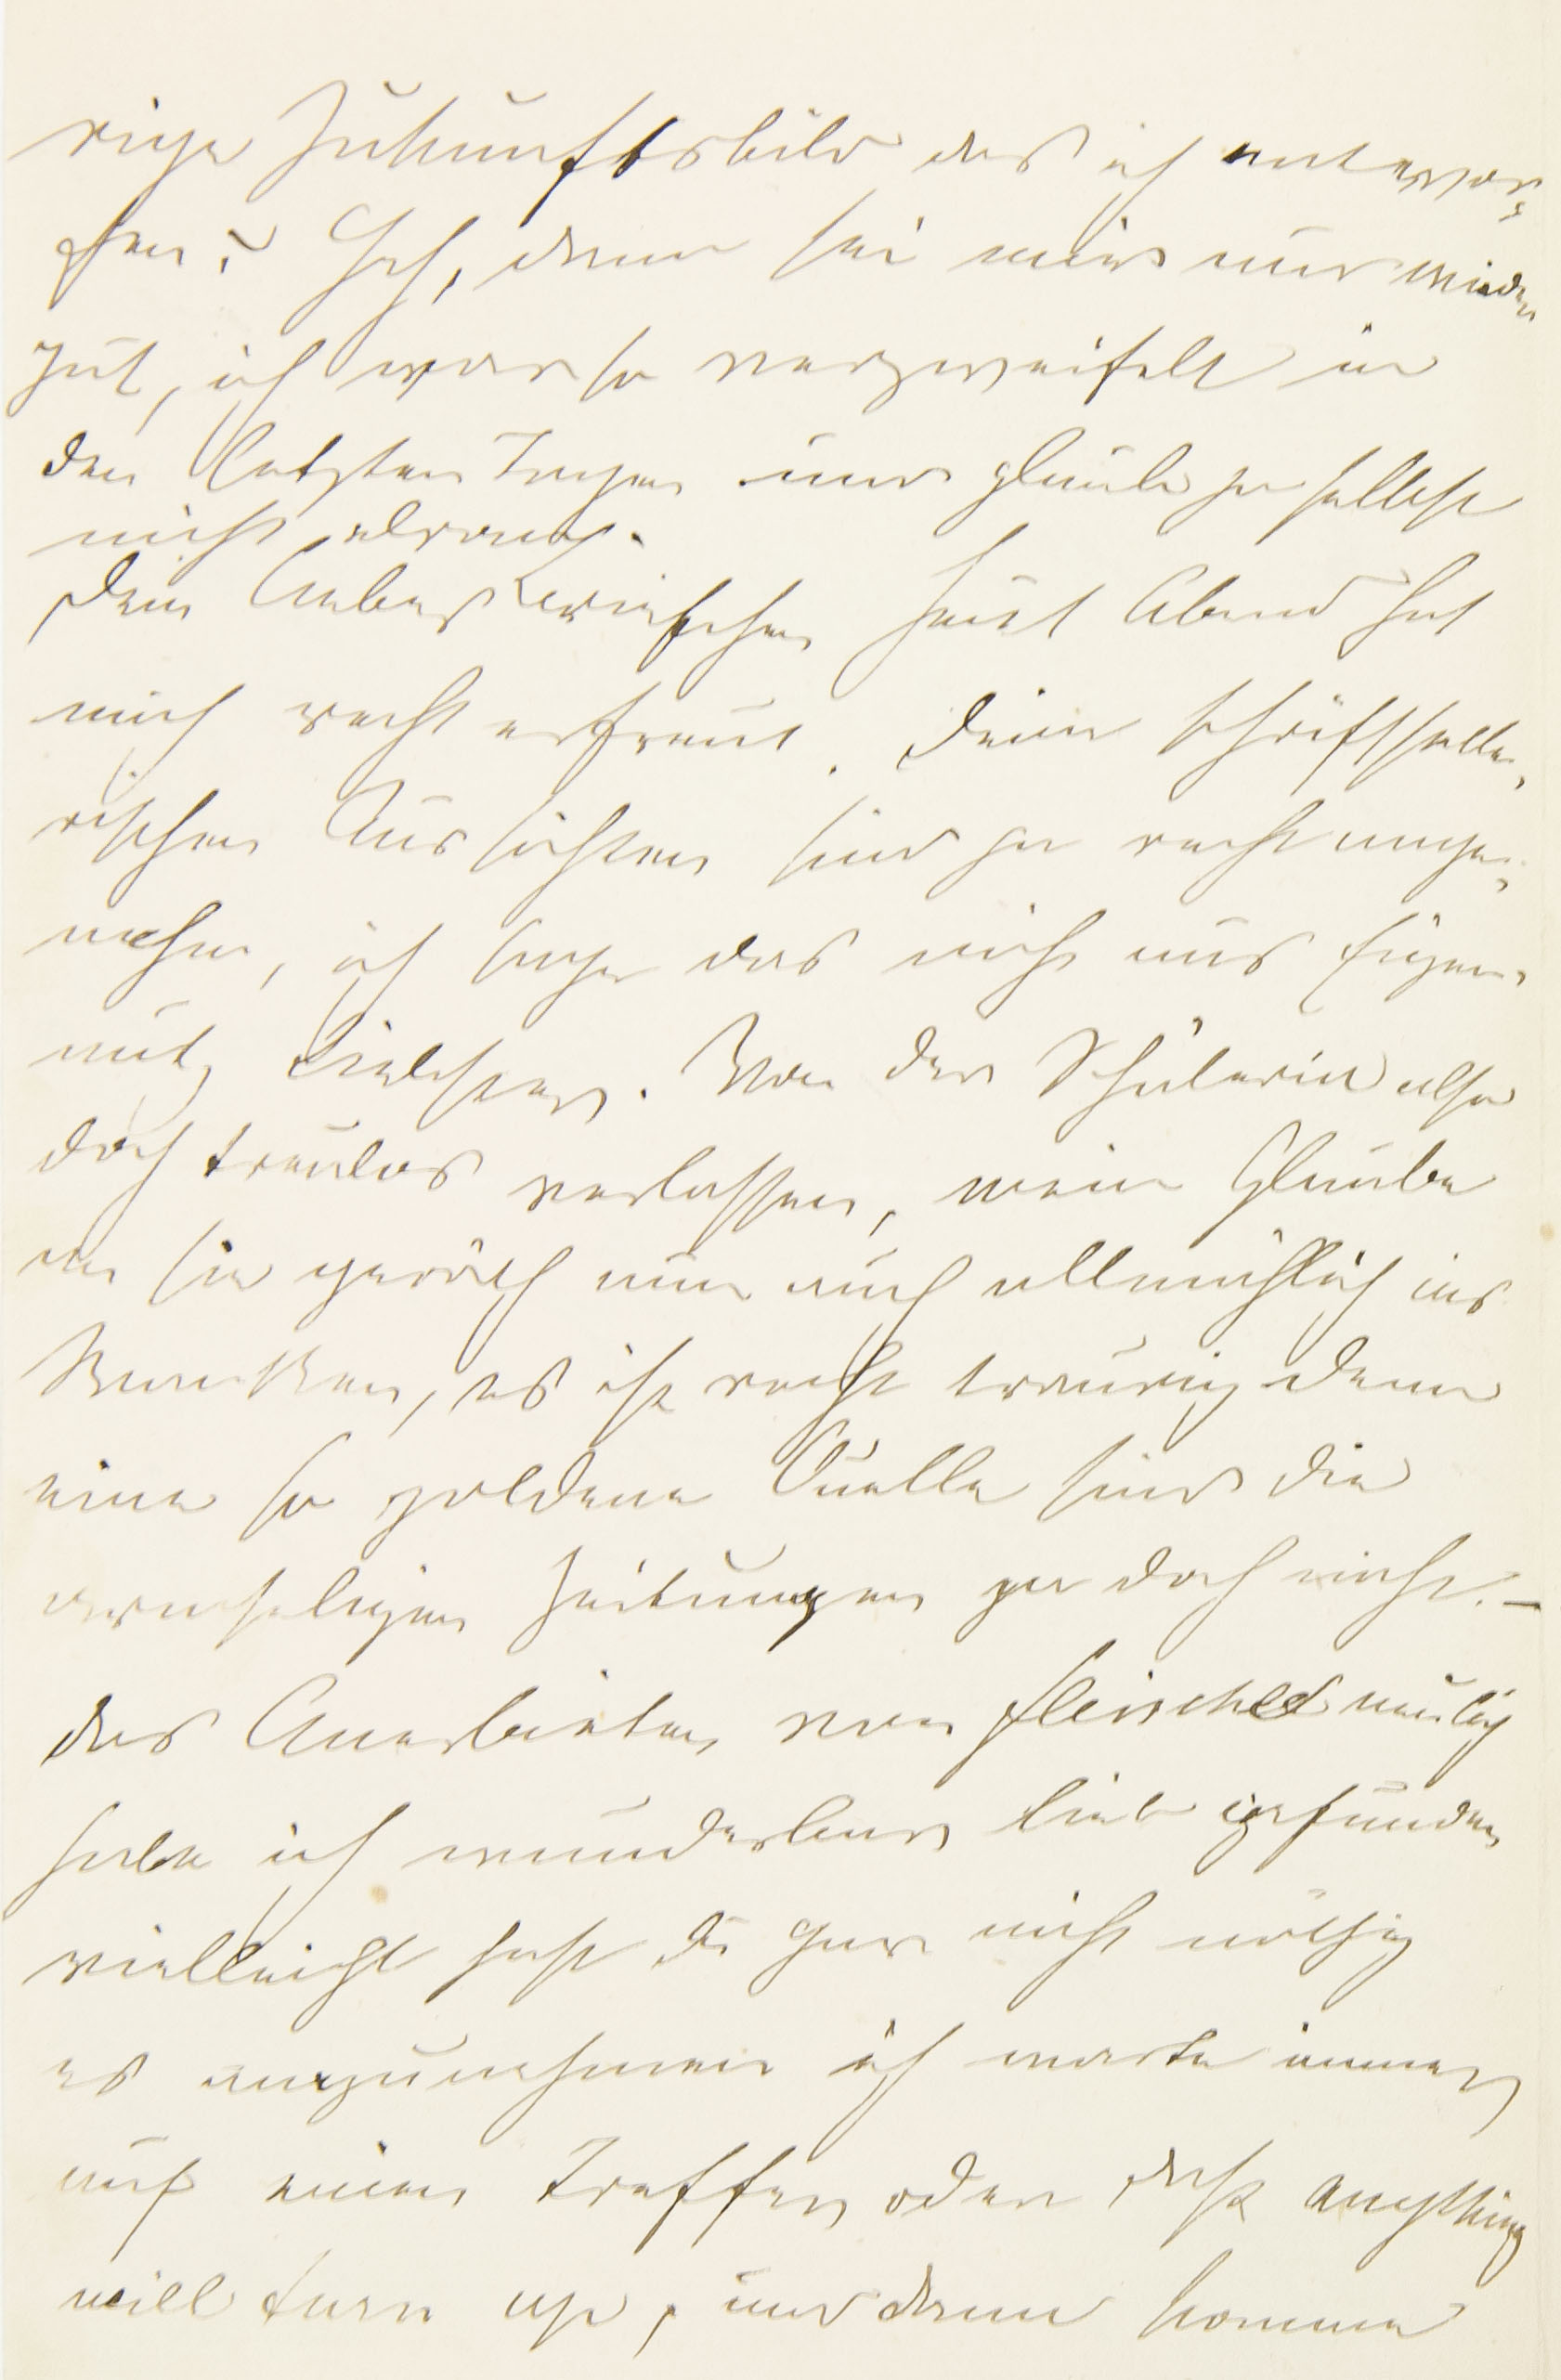 rige Zukunftsbild das ich entwor-
fen? Ach, dann sei mir nur wieder
gut, ich war so verzweifelt in
den letzten Tagen und glaube ja selbst
nicht daran.
Dein liebes Briefchen heut Abend hat
mich recht erfreut. Deine schriftstelle-
rischen Aussichten sind ja recht ange-
nehm, ich sage das nicht aus Eigen-
nutz Liebster. Von der Schülerin also
doch treulos verlassen, mein Glaube
an sie geräth nun auch allmählich ins
Wanken, es ist recht traurig denn
eine so goldene Quelle sind die
armseligen Zeitungen ja doch nicht. –
Das Anerbieten von Fleischel neulich
habe ich wunderbar lieb gefunden
vielleicht hast du gar nicht nöthig
es anzunehmen ich warte immer
auf einen Treffer oder dass anything
will turn up, und dann komme